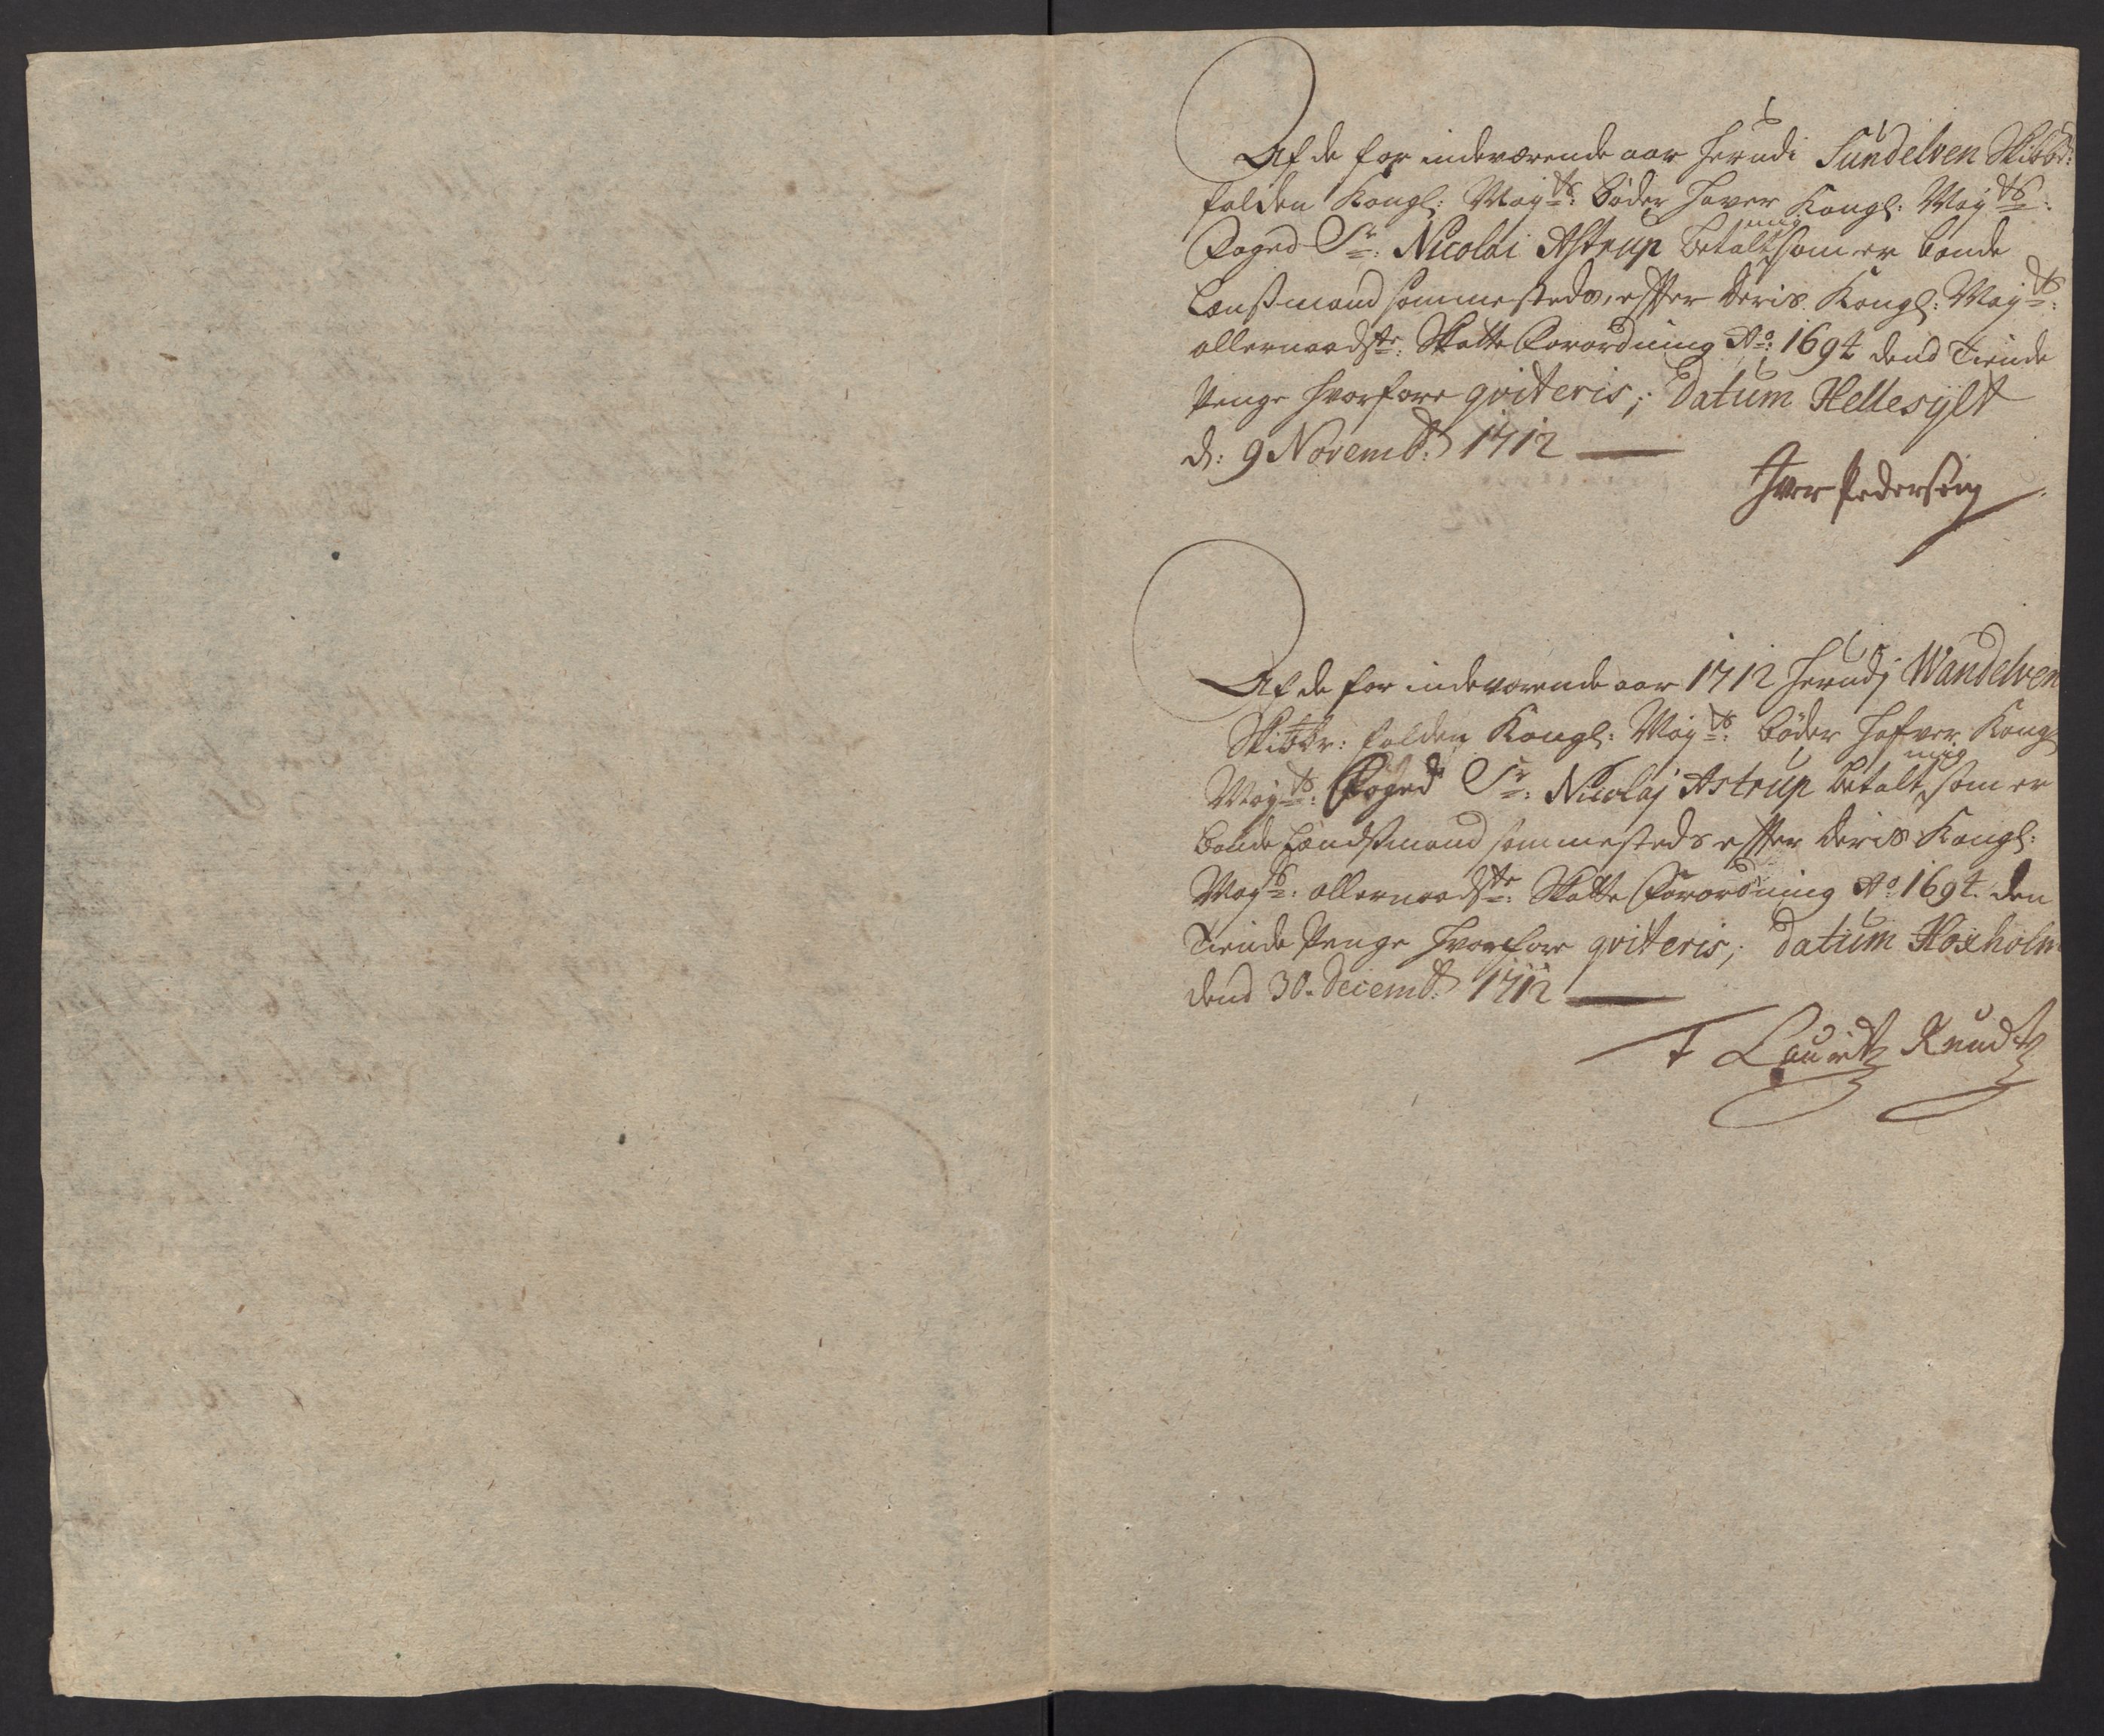 Af de for indeværende aar herudi Sundelven Skibbr:
falden Kongl: May:ts: bøder haver Kongl: May:ts:
Foged Sr: Nicolai Astrup betalt mig som er bonde
Lænßmand sammesteds, effter deris Kongl: May:ts:
allernaadste: Skatte Forordning Ao: 1694 dend Tiende
Penge hvorfore qviteris; Datum Hellesylt
d: 9 Novembr: 1712
Iver Pedersøn
Af de for indeværende aar 1712 herudj Wandelven
Skibbr: falden Kongl: May:ts: bøder hafver Kongl
May:ts: Foged Sr: Nicolaj Astrup betalt mig som er
bonde Lændsmand sammesteds effter deris Kongl:
May:ts: allernaadste: Skatte Forordning Ao: 1694 den
Tiende Penge hvorfore qviteris; datum Hoxholm
dend 30. Decembr: 1712
Lauritz Knudtz